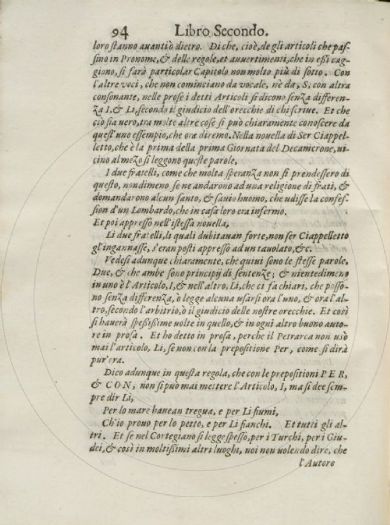 94 Libro Secondo.
loro stanno auanti, ò dietro. Di che, cioè, de gli articoli che pas-
sino in Pronome, & delle regole, et auuertimenti, che in essi cag-
giono, si farà particolar Capitolo non molto più di sotto. Con
l'altre voci, che non cominciano da vocale, nè da, S, con altra
consonante, nelle prose i detti Articoli si dicono senza differen-
za I. & Li, secondo il giudicio dell'orecchie di chi scriue. Et che
ciò sia vero, tra molte altre cose si può chiaramente conoscere da
quest'uno essempio, che ora diremo. Nella nouella di Ser Ciappel-
letto, che è la prima della prima Giornata del Decamerone, ui-
cino al mezo si leggono queste parole,
I due fratelli, come che molta speranza non si prendessero di
questo, nondimeno se ne andarono ad una religione di frati, &
domandarono alcun santo, & sauio huomo, che udisse la confes-
sion d'un Lombardo, che in casa loro era infermo.
Et poi appresso nell'istessa nouella,
Li due fratelli, li quali dubitauan forte, non ser Ciappelletto
gl'ingannasse, s'eran posti appresso ad un tauolato, &c.
Vedesi adunque chiaramente, che quiui sono le stesse parole.
Due, & che ambe sono principij di sentenze; & nientedimeno
in uno è l'Articolo, I, & nell'altro, Li, che ci fa chiari, che posso-
no senza differenza, ò legge alcuna usarsi ora l'uno, & ora l'al-
tro, secondo l'arbitrio, ò il giudicio delle nostre orecchie. Et così
si hauerà spessissime volte in quello, & in ogni altro buono auto-
re in prosa. Et ho detto in prosa, perche il Petrarca non usò
mai l'articolo, Li, se non con la prepositione Per, come si dirà
pur'era.
Dico adunque in questa regola, che con le prepositioni PER,
& CON, non si può mai mettere l'Articolo, I, ma si dee sem-
pre dir Li,
Per lo mare hauean tregua, e per Li fiumi,
Ch'io prouo per lo petto, e per Li fianchi. Et tutti gli al-
tri. Et se nel Cortegiano si legge spesso, per i Turchi, per i Giu-
dei, & così in moltissimi altri luoghi, noi non uolendo dire, che
l'Autore